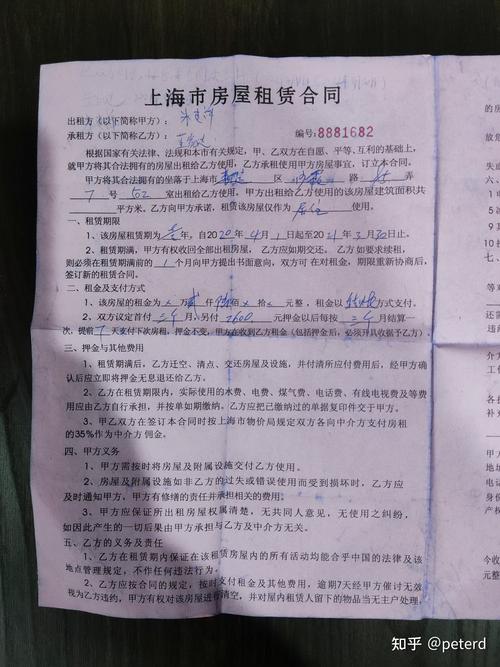 上海市房屋租赁合同
出租方（以下简称甲方）：
承租方（以下简称乙方）：
编号:8881682
根据国家有关法律、法规和本市有关规定，甲、乙双方在自愿、平等、互利的基础上，
就甲方将其合法拥有的房屋出租给乙方使用，乙方承租使用甲方房屋事宜，订立本合同。
甲方将其合法拥有的坐落在上海市 区 路 弄
7 号 602 室出租给乙方使用，甲方出租给乙方使用的该房屋建筑面积共
平方米。乙方向甲方承诺，租赁该房屋仅作为 居住 使用。
一、租赁期限
1、该房屋租赁期为 壹 年，自2020年4月1日起至2021年3月30日止。
2、租赁期满，甲方有权收回全部出租房屋，乙方应如期交还。乙方如要求续租，
则必须在租赁期满前的 1 个月向甲方提出书面意向，双方可在对租金，期限重新协商后，
签订新的租赁合同。
二、租金及支付方式
1、该房屋的租金为 万 仟 佰 拾 元整，租金以 方式支付。
2、双方议定首付 三个 月，另付 2600 元押金以后每按 三个 月结算一
次，提前 7 天支付下次房租，押金不变，甲方在收到乙方租金（包括押金后，必须开具收据予乙方）。
三、押金与其他费用
1、租赁期满后，乙方迁空、清点、交还房屋及设施，并付清所应付费用后，经甲方确
认后应立即将押金无息退还给乙方。
2、乙方在租赁期限内，实际使用的水费、电费、煤气费、电话费、有线电视费及等费
用应由乙方自行承担，并按单如期缴纳。乙方应把已缴纳过的单据复印件交于甲方。
3、甲乙双方在签订本合同时按上海市物价局规定双方各向中介方支付房租
的35%作为中介方佣金。
四、甲方义务
1、甲方需按时将房屋及附属设施交付乙方使用。
2、房屋及附属设施如非乙方的过失或错误使用而受到损坏时，乙方应
及时通知甲方，甲方有修缮的责任并承担相关的费用。
3、甲方应保证所出租房屋权属清楚，无共同人意见，无使用之纠纷，
如因此产生的一切后果由甲方承担与乙方及中介方无关。
五、乙方的义务及责任
1、乙方在租赁期内保证在该租赁房屋内的所有活动均能合乎中国的法律及该
地点管理规定，不作任何违法行为。
2、乙方应按合同的规定，按时支付租金及其他费用，逾期7天经甲方催讨无效
视为乙方违约，甲方有权对该房屋进行清空，并对屋内租赁人留下的物品当无主户处理，
知乎 @peterd